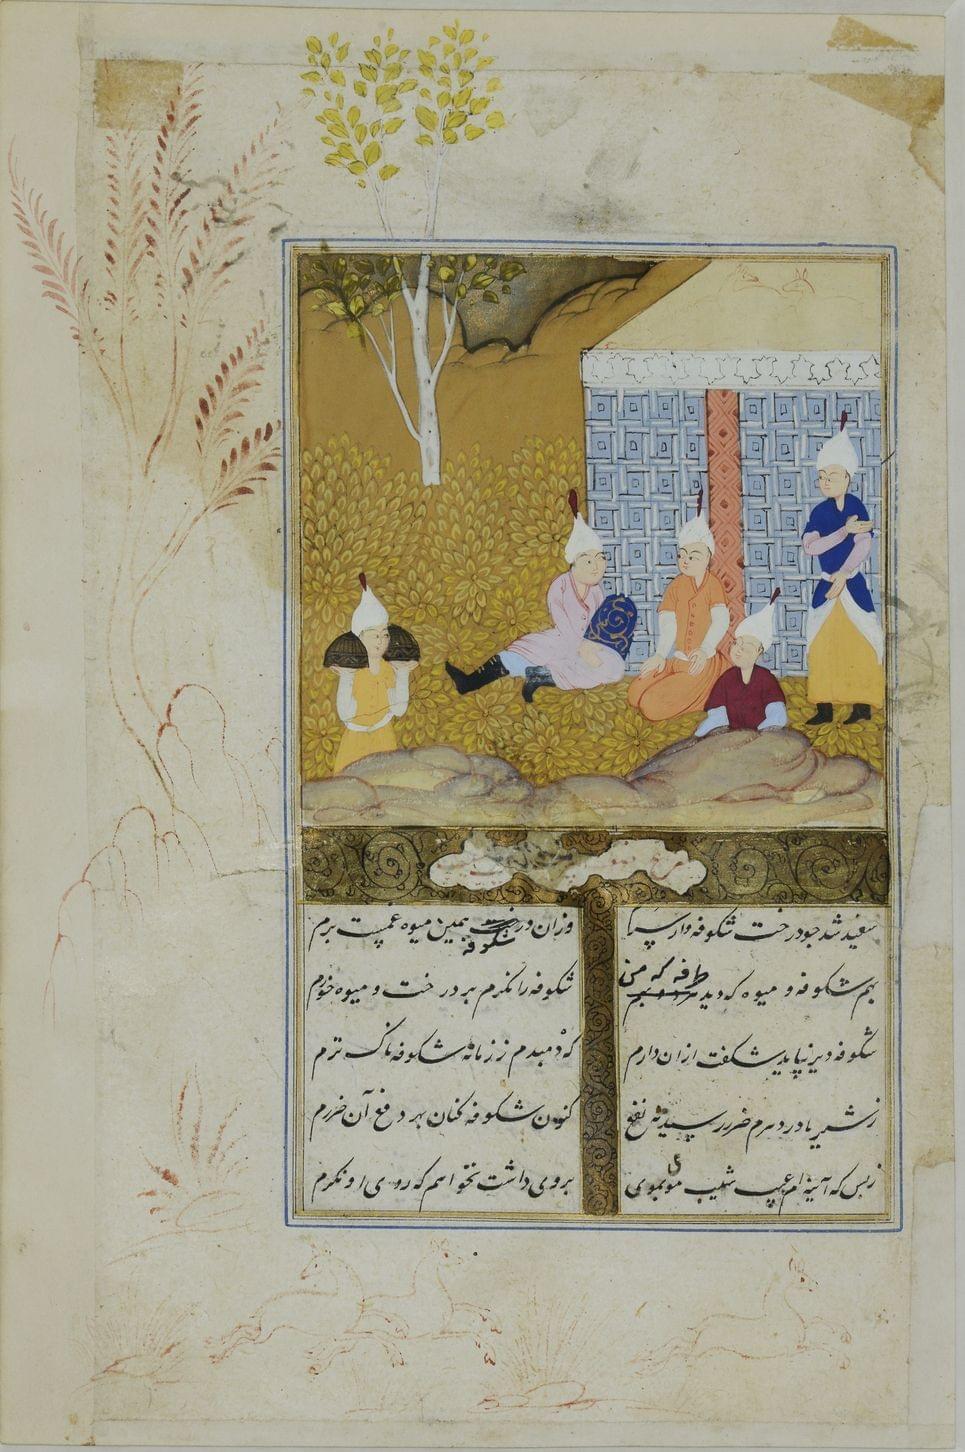 سفید شد چو درخت شکوفه وار
وزان درخت همین میوه غمست برم
شکوفه
بهم شکوفه و میوه که دید طرفه که من
شکوفه را نکرم بر درخت و میوه خورم
شکوفه دیر نپاید شکفت ازان دارم
که دمبدم ز زمانه شکوفه ناک ترم
ز شیر مادر دهرم ضرر رسید نه نفع
کنون شکوفه کنان بهر دفع آن ضررم
ز بس که آینه ام عیب شیب موی بموی
بروی داشت نخواهم که روی او نکرم